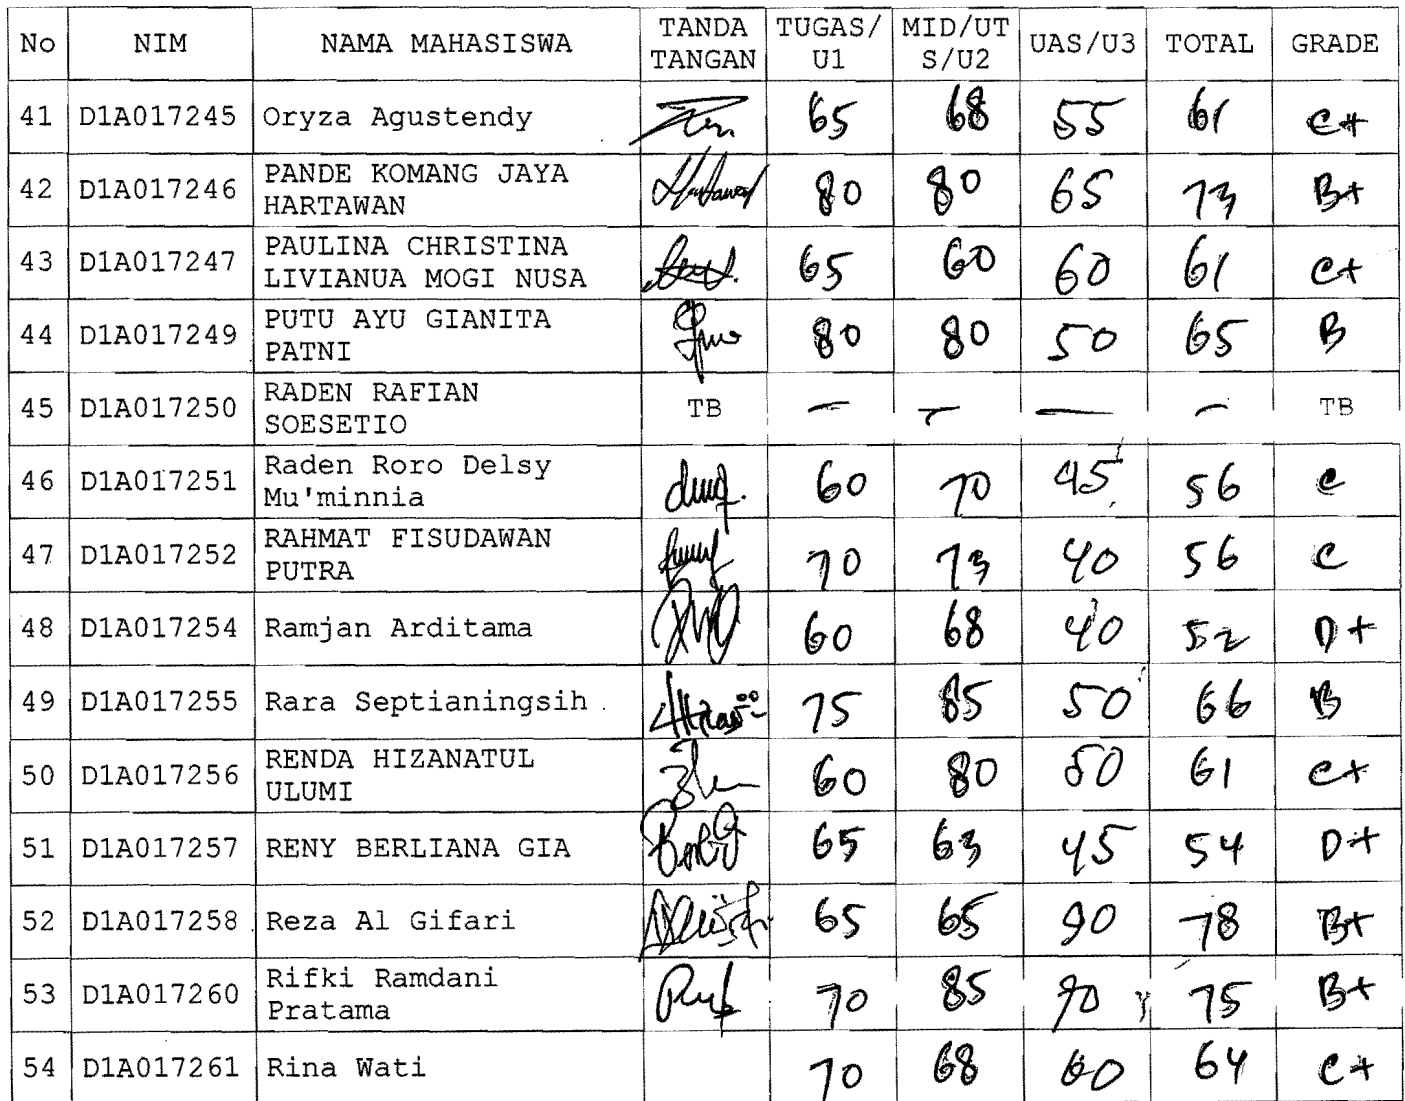 No NIM NAMA MAHASISWA TANDA TANGAN TUGAS/U1 MID/UTS/U2 UAS/U3 TOTAL GRADE
41 D1A017245 Oryza Agustendy 65 68 55 61 C+
42 D1A017246 PANDE KOMANG JAYA 80 80 65 73 B+
HARTAWAN
43 D1A017247 PAULINA CHRISTINA 65 60 60 61 C+
LIVIANUA MOGI NUSA
44 D1A017249 PUTU AYU GIANITA 80 80 50 65 B
PATNI
45 D1A017250 RADEN RAFIAN TB – – – – TB
SOESETIO
46 D1A017251 Raden Roro Delsy 60 70 45 56 C
Mu'minnia
47 D1A017252 RAHMAT FISUDAWAN 70 73 40 56 C
PUTRA
48 D1A017254 Ramjan Arditama 60 68 40 52 D+
49 D1A017255 Rara Septianingsih 75 85 50 66 B
50 D1A017256 RENDA HIZANATUL 60 80 50 61 C+
ULUMI
51 D1A017257 RENY BERLIANA GIA 65 63 45 54 D+
52 D1A017258 Reza Al Gifari 65 65 90 78 B+
53 D1A017260 Rifki Ramdani 70 85 70 75 B+
Pratama
54 D1A017261 Rina Wati 70 68 60 64 C+